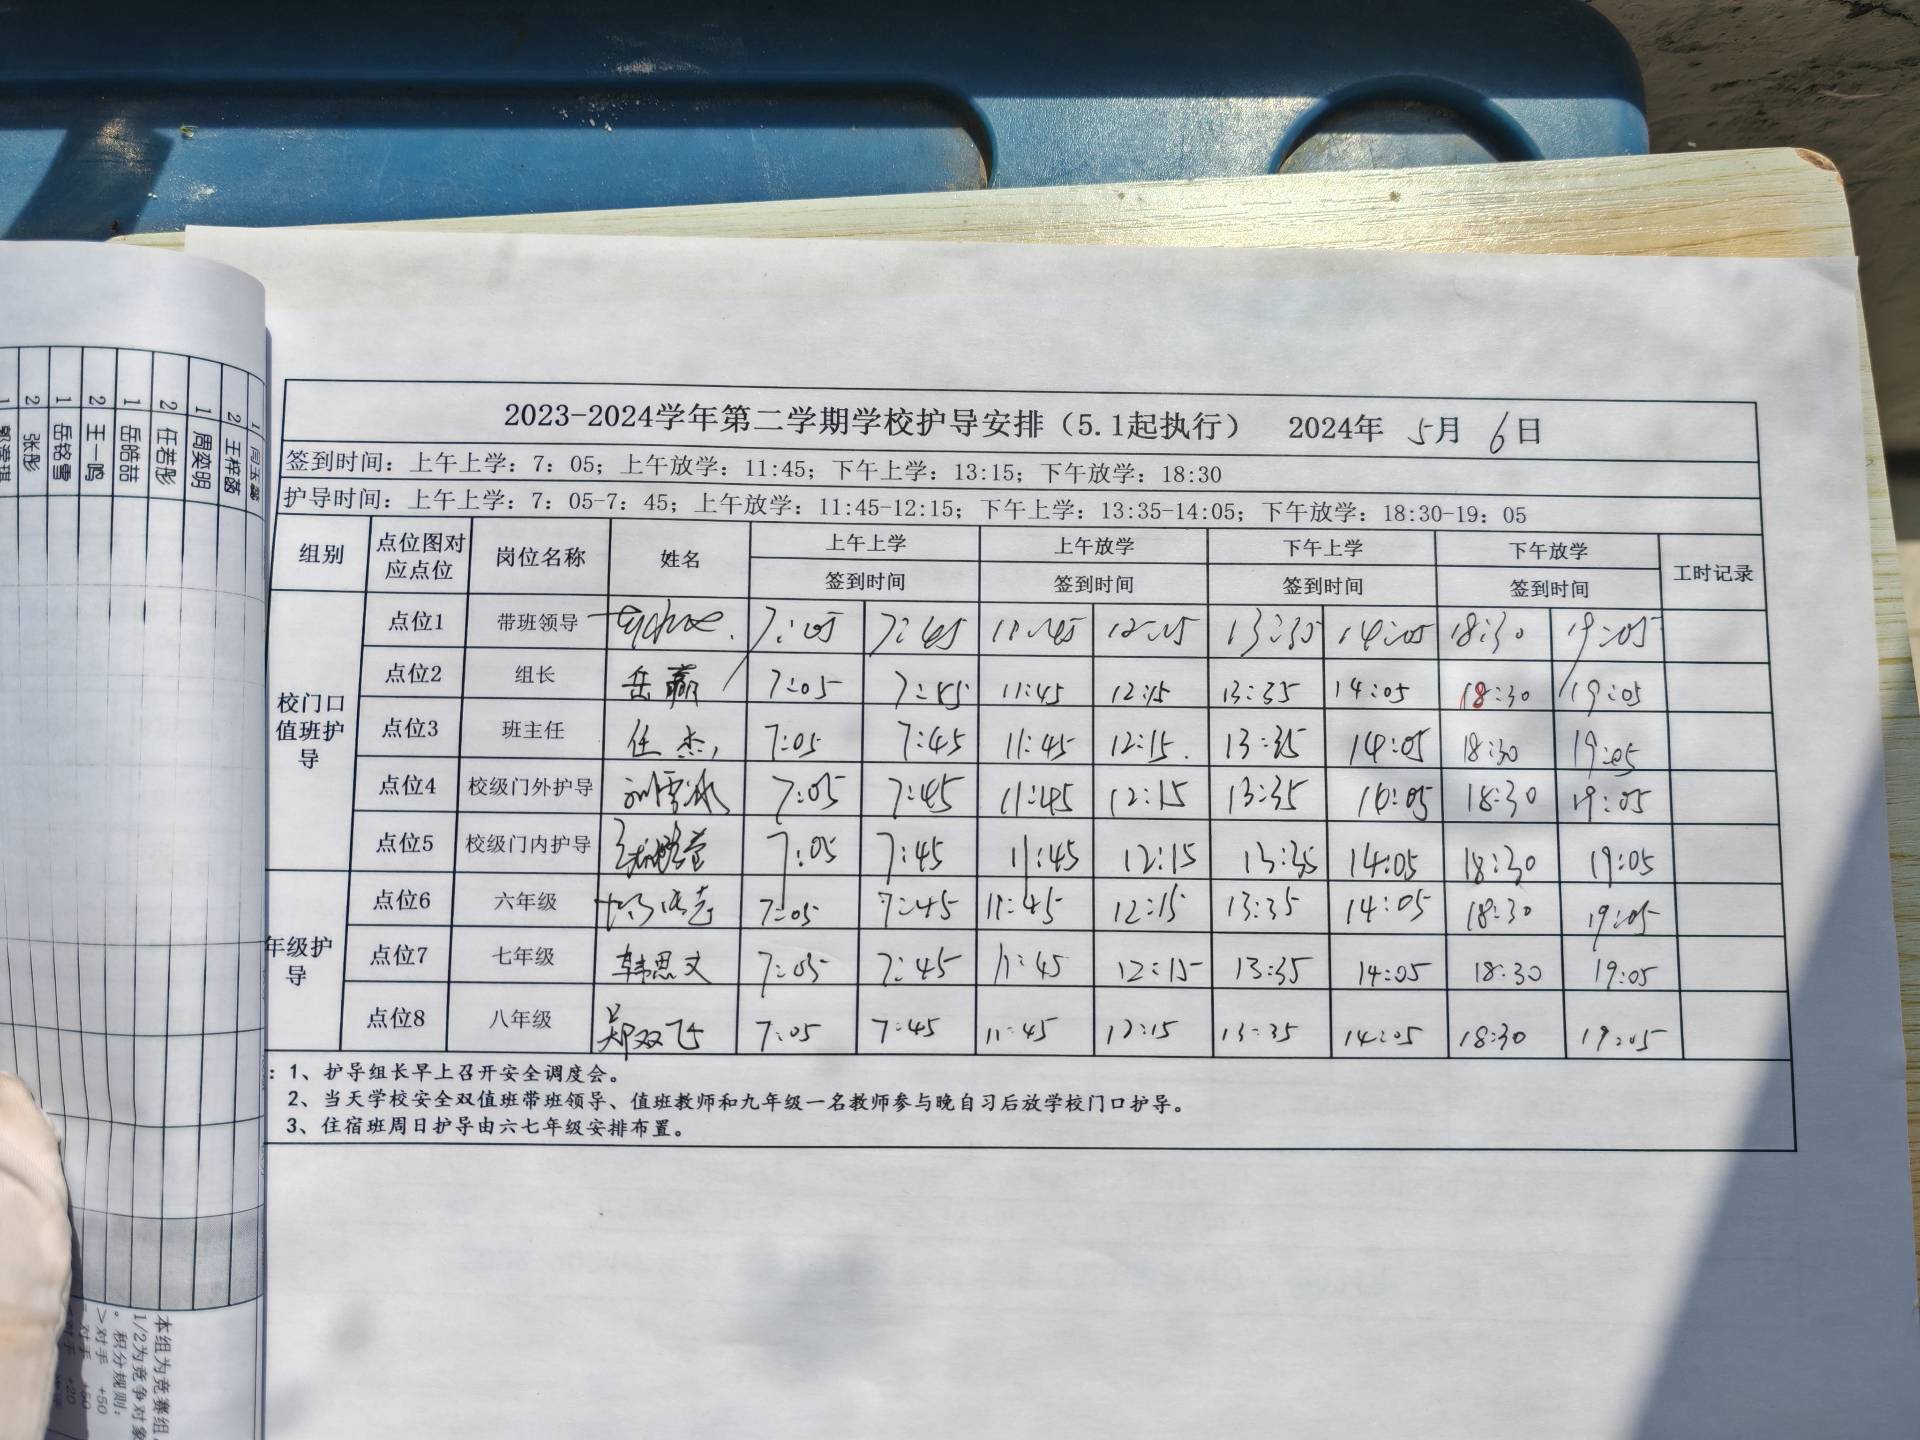 2023-2024学年第二学期学校护导安排（5.1起执行） 2024年 5月 6日
签到时间：上午上学：7：05；上午放学：11:45；下午上学：13:15；下午放学：18:30
护导时间：上午上学：7：05-7：45；上午放学：11:45-12:15；下午上学：13:35-14:05；下午放学：18:30-19：05
组别 点位图对应点位 岗位名称 姓名 上午上学 上午放学 下午上学 下午放学 工时记录
签到时间 签到时间 签到时间 签到时间
校门口值班护导
点位1 带班领导 7:05 7:45 11:45 12:15 13:35 14:05 18:30 19:05
点位2 组长 岳赢 7:05 7:45 11:45 12:15 13:35 14:05 18:30 19:05
点位3 班主任 任杰 7:05 7:45 11:45 12:15 13:35 14:05 18:30 19:05
点位4 校级门外护导 7:05 7:45 11:45 12:15 13:35 14:05 18:30 19:05
点位5 校级门内护导 7:05 7:45 11:45 12:15 13:35 14:05 18:30 19:05
年级护导
点位6 六年级 7:05 7:45 11:45 12:15 13:35 14:05 18:30 19:05
点位7 七年级 韩思文 7:05 7:45 11:45 12:15 13:35 14:05 18:30 19:05
点位8 八年级 郑双飞 7:05 7:45 11:45 12:15 13:35 14:05 18:30 19:05
：1、护导组长早上召开安全调度会。
2、当天学校安全双值班带班领导、值班教师和九年级一名教师参与晚自习后放学校门口护导。
3、住宿班周日护导由六七年级安排布置。
2 王梓菡
1 周奕明
2 任若彤
1 岳皓喆
2 王一鸣
1 岳铭雪
2 张彤
本组为竞赛组
1/2为竞争对象
。积分规则：
>对手 +50